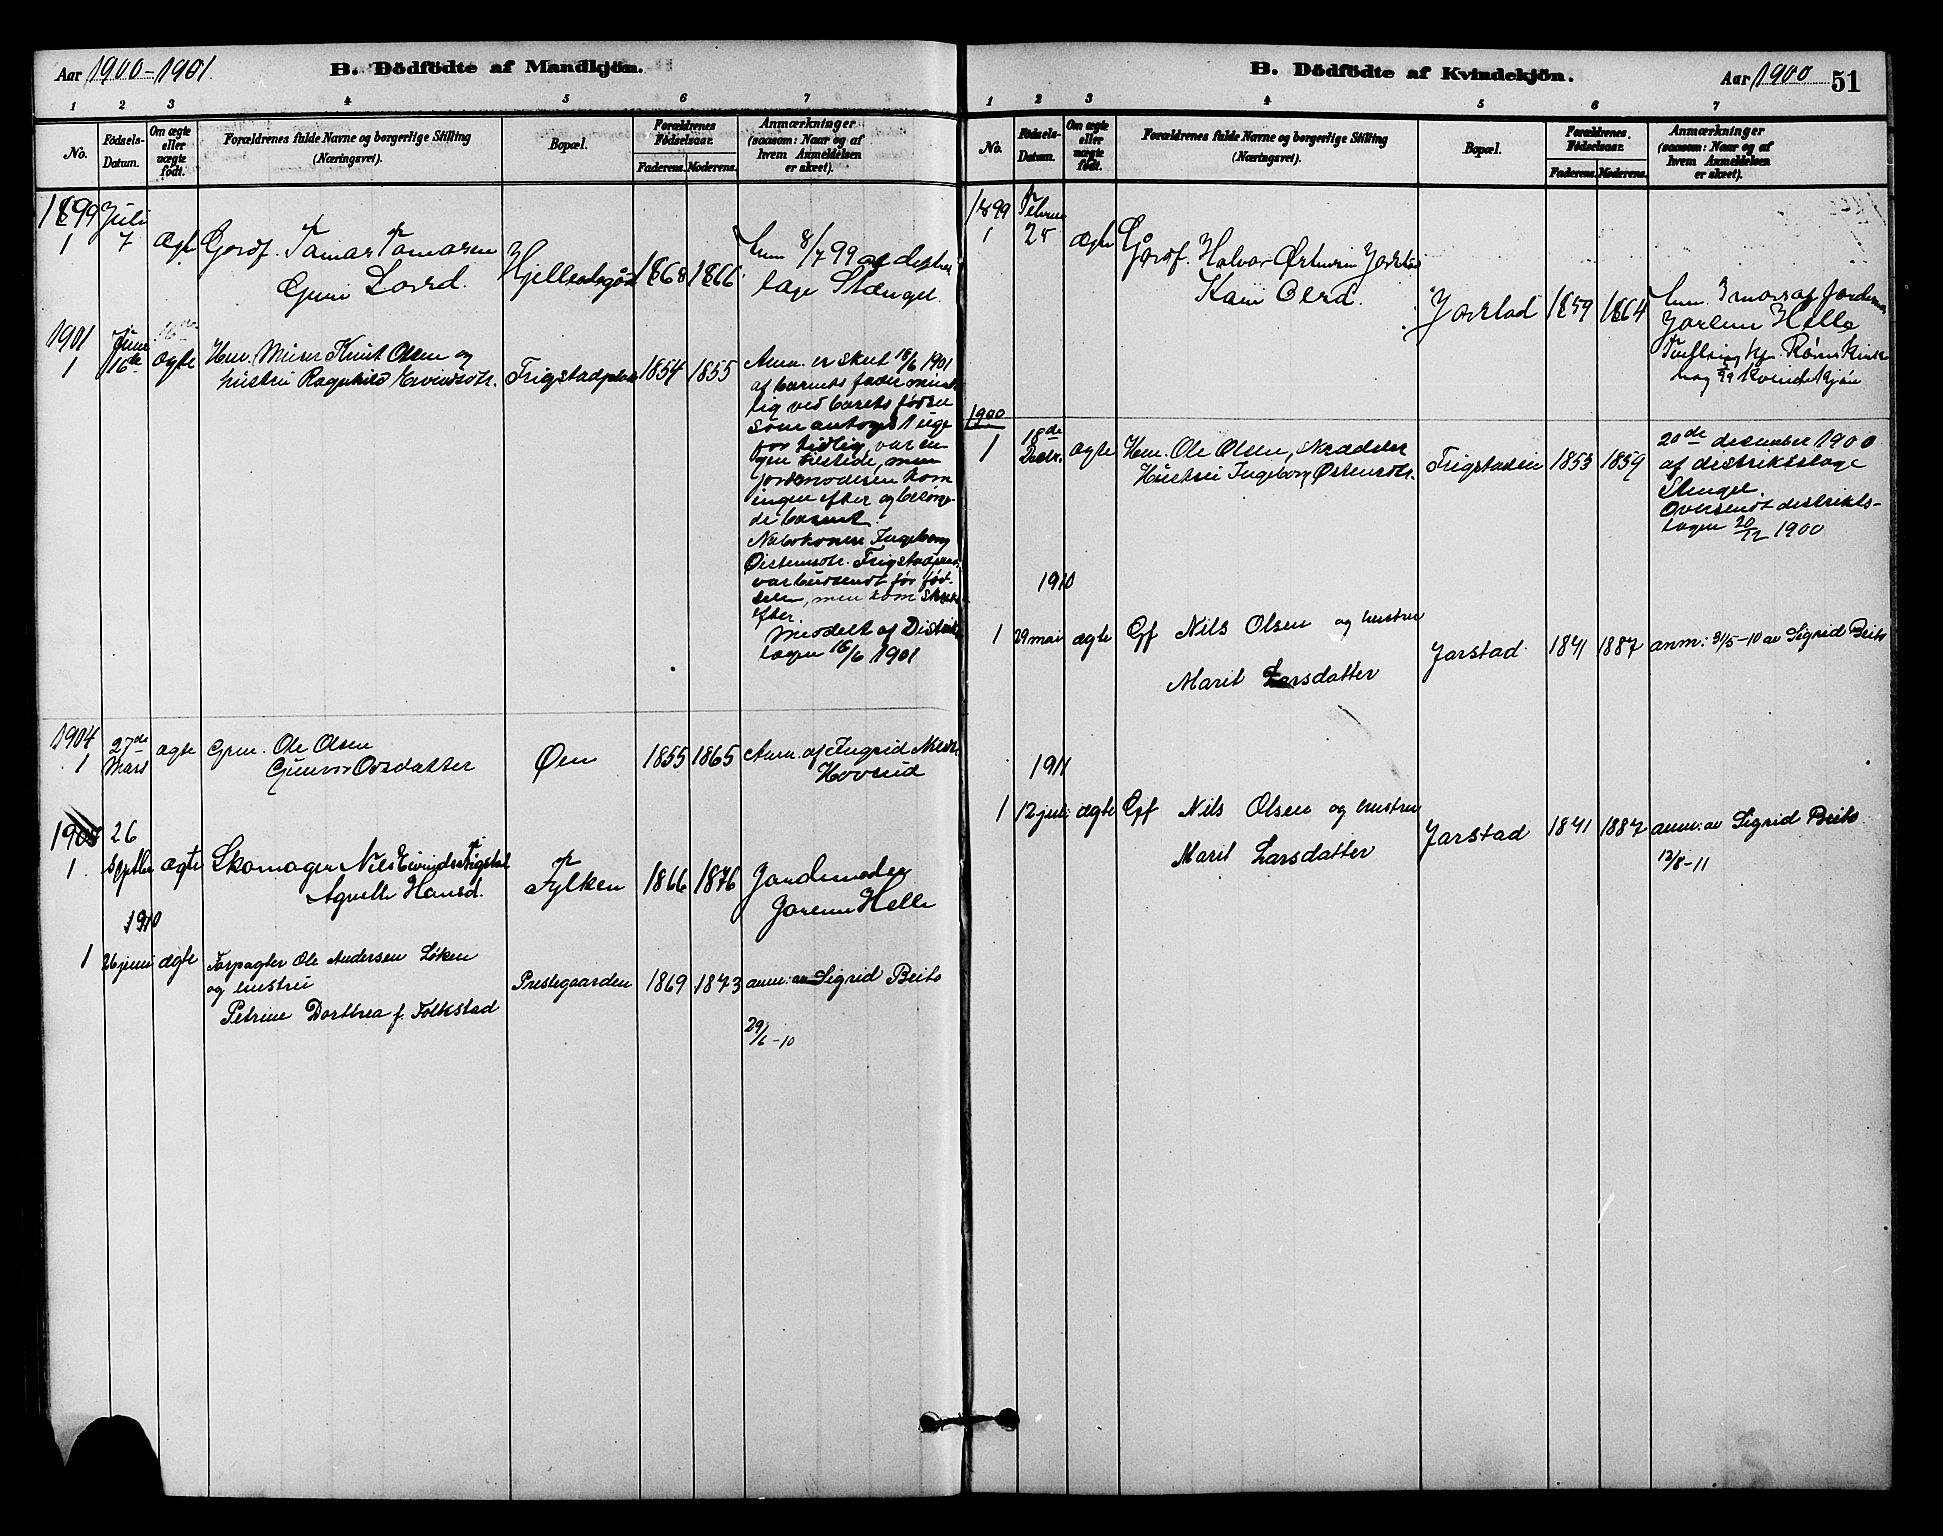 Aar 1900-1901.
B. Dödfödte af Mandkjön.
1 2 3 4 5 6 7
No.
Födsels-Datum.
Om ægte eller uægte födt.
Forældrenes fulde Navne og borgerlige Stilling (Næringsvei).
Bopæl.
Forældrenes Födselsaar.
Faderens. Moderens.
Anmærkninger (saasom: Naar og af hvem Anmeldelsen er skeet).
1899 Juli
1 7 ægte Gordf. Tomas Tomasen
Guri Larsd. 1868 1866
8/7 99 af
1901 Juni
1 16de ægte Hm. Murer Knut Olsen og
hustru Ragnhild Eivindsdtr. Frigstadplads 1854 1855
Anm. er skeet 18/6 1901
af barnets fader munt-
lig ved barnets fødsel
som antoges 1 uge
for tidlig var in-
gen tilstede, men
jordmoderen kom
ingen efter og besørge-
de barnet.
Nabokonen Ingeborg
Østensdtr. Frigstadplads
var budsendt før fød-
selen, men kom strax
efter.
Meddelt af Distrikts
lægen 18/6 1901
1904
1 27de Mars ægte Grm. Ole Olsen
Gunvor Ovsdatter Øen 1855 1865
Anm. af Ingrid
Hovrud
26
1. Septbr ægte Skomager Nils Eivindsen Frigstad
Agnethe Hansd. Fylken 1866 1876
Jordmoder
Jorunn Helle
1910
1 26 juni ægte Forpagter Ole Andersen Løken
og hustru
Petrine Dorthea f. Folkstad
Prestegaarden 1869 1873 anm: av Sigrid Beito
29/6-10
B. Dödfödte af Kvindekjön.
Aar 1900 51
1 2 3 4 5 6 7
No.
Födsels-Datum.
Om ægte eller uægte födt.
Forældrenes fulde Navne og borgerlige Stilling (Næringsvei).
Bopæl.
Forældrenes Födselsaar.
Faderens. Moderens.
Anmærkninger (saasom: Naar og af hvem Anmeldelsen er skeet).
1899 Februar
1 25 ægte Gordf. Halvor Østensen Jarstad
Kari Olsd. Jarstad 1859 1864
3 mars af Jordemor
Jorunn Helle
Kvindekjøn
1900
1 18de Decbr. ægte Hm. Ole Olsen, Skrædder
Hustru Ingeborg Østensdtr. Frigstadeie 1853 1859
20de desember 1900
af distriktslæge
Stengel.
Oversendt distrikts-
lægen 20/12 1900
1910
1 29 mai ægte Gf Nils Olsen og hustru
Marit Larsdatter Jarstad 1841 1887 anm: 31/5-10 av Sigrid Beito
1911
1 12 juli ægte Gf Nils Olsen og hustru
Marit Larsdatter Jarstad 1841 1887 anm: av Sigrid Beito
12/8-11